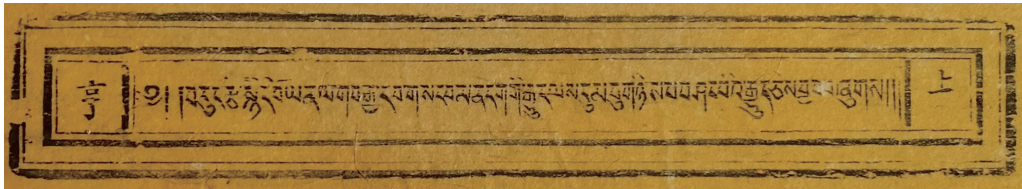 ༄། །བདུད་རྩི་སྙིང་པོ་ཡན་ལག་བརྒྱད་པ་གསང་བ་མན་ངག་གི་རྒྱུད་ལས་དུམ་བུ་གཉིས་པ་བཤད་པའི་རྒྱུད་ཅེས་བྱ་བ་བཞུགས།།།